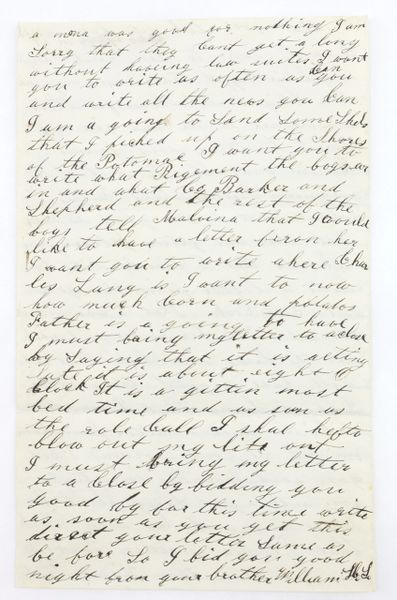 a mena was good for nothing I am
Sorry that they Cant get a long
without haveing law suites I want
you to write as often as you Can
and write all the news you Can
I am a going to Sand Some Shels
that I picked up on the Shores
of the Potomac I want you to
write what Rigement the boys ar
in and what Co Barker and
Shepherd and the rest of the
boys tell Malvina that I would
like to have a letter from her
I want you to write where Char
les Lang is I want to now
how much Corn and potatos
Father is a going to have
I must bring my letter to a close
by Saying that it is a
late it is about eight O
Clock It is a gittin most
bed time and as soon as
the role Call I shal hefto
blow out my lite out
I must bring my letter
to a Close by bidding you
good by for this time write
as soon as you get this
direct your letter Same as
be fore So I bid you good
night from your brother William H L